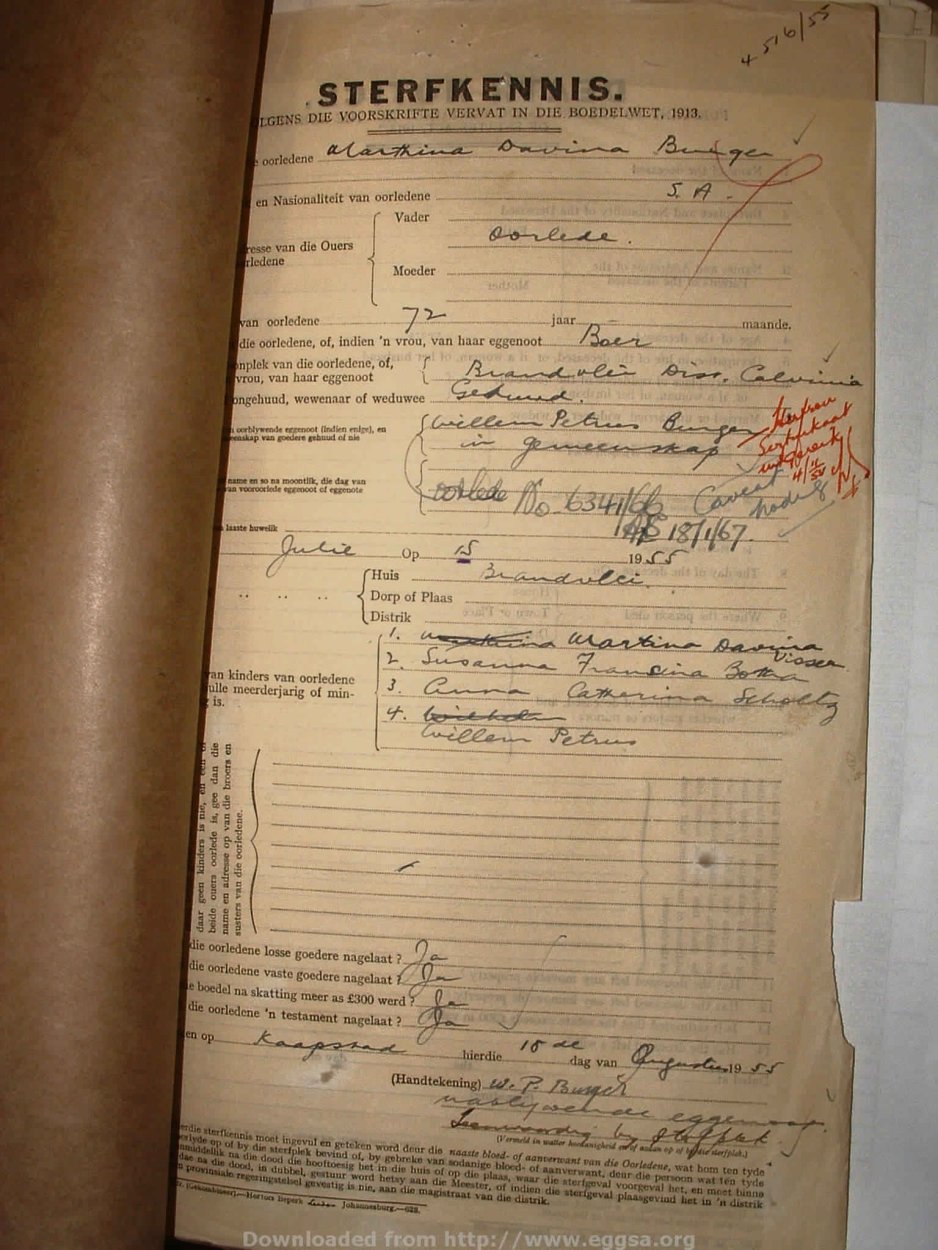 4516/55
STERFKENNIS.
LGENS DIE VOORSKRIFTE VERVAT IN DIE BOEDELWET, 1913.
e oorledene Marthina Davina Burger
en Nasionaliteit van oorledene S. A.
Vader
Oorlede.
resse van die Ouers
rledene
Moeder
van oorledene 72 jaar maande.
die oorledene, of, indien 'n vrou, van haar eggenoot Boer
onplek van die oorledene, of,
vrou, van haar eggenoot
Brandvlei Diss. Calvinia
ongehuud, wewenaar of weduwee Gehuud.
n oorblywende eggenoot (indien enige), en
eenskap van goedere gehuud of nie
Willem Petrus Burger
in gemeenskap
Sertifikaat
uitgereik
name en so na moontlik, die dag van
van vooroorlede eggenoot of eggenote
oorlede No 6341/66 Caveat nodig
18/1/67.
n laaste huwelik
Julie Op 15 1955
Huis Brandvlei.
Dorp of Plaas
Distrik
1. Martina Davina Visser
2. Susanna Francina Botha
3. Anna Catherina Scholtz
4.
Willem Petrus
van kinders van oorledene
ulle meerderjarig of min-
g is.
daar geen kinders is nie, en een of
beide ouers oorlede is, gee dan die
name en adresse op van die broers en
susters van die oorledene.
die oorledene losse goedere nagelaat ? Ja
die oorledene vaste goedere nagelaat ? Ja
e boedel na skatting meer as £300 werd ? Ja
die oorledene 'n testament nagelaat ? Ja
en op Kaapstad hierdie 18de dag van Augustus 1955
(Handtekening) W. P. Burger
nablywende eggenoot
Teenwoordig by sterfplek.
(Vermeld in watter hoedanigheid en of aldan op of by die sterfplek.)
erdie sterfkennis moet ingevul en geteken word deur die naaste bloed- of aanverwant van die Oorledene, wat hom ten tyde
erlyde op of by die sterfplek bevind of, by gebreke van sodanige bloed- of aanverwant, deur die persoon wat ten tyde
nmiddelik na die dood die hooftoesig het in die huis of op die plaas, waar die sterfgeval voorgeval het, en moet binne
dae na die dood, in dubbel, gestuur word hetsy aan die Meester, of indien die sterfgeval plaasgevind het in 'n distrik
n provinsiale regeringstelsel gevestig is nie, aan die magistraat van die distrik.
Hortors Beperk Johannesburg.—628.
Downloaded from http://www.eggsa.org